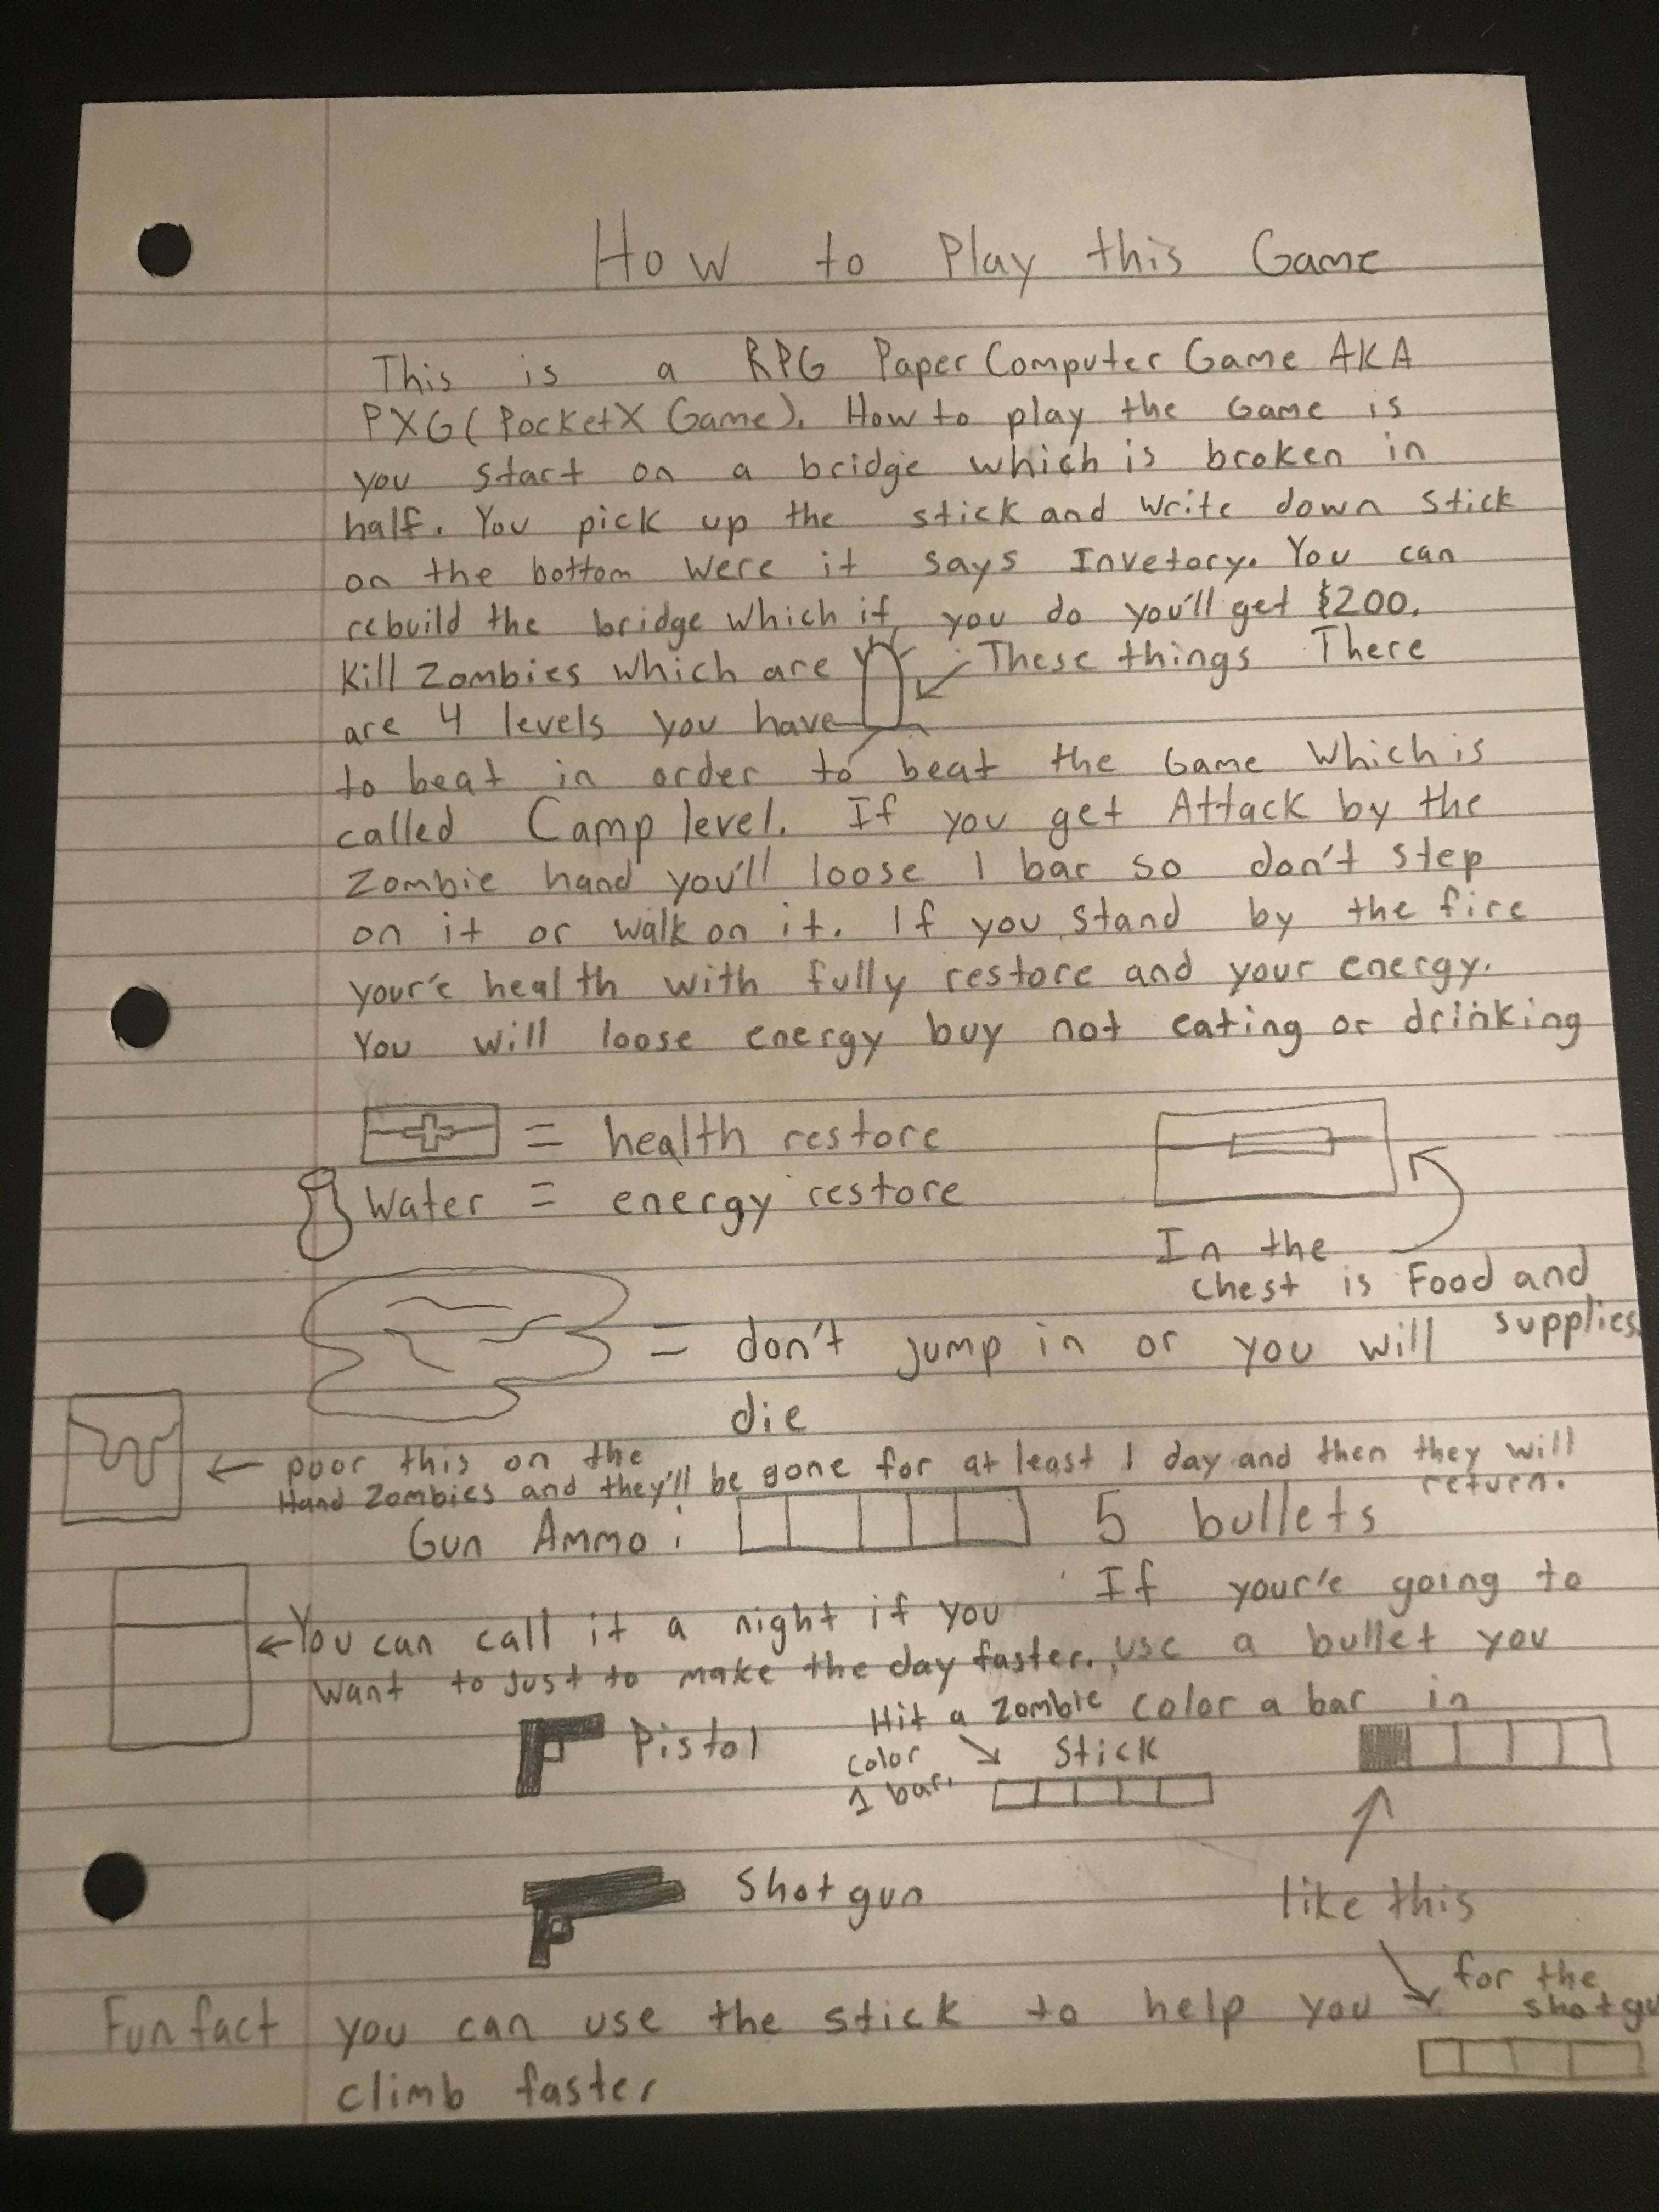 How to Play this Game
This is a RPG Paper Computer Game AKA
PXG(PocketX Game). How to play the Game is
you start on a bridge which is broken in
half. You pick up the stick and write down stick
on the bottom were it says Invetory. You can
rebuild the bridge which if you do you'll get $200.
Kill Zombies which are These things There
are 4 levels you have
to beat in order to beat the Game which is
called Camp level. If you get Attack by the
Zombie hand you'll loose 1 bar so don't step
on it or walk on it. If you stand by the fire
your'e health with fully restore and your energy.
You will loose energy buy not eating or drinking
= health restore
Water = energy restore
In the
chest is Food and
supplies.
= don't jump in or you will
die
poor this on the
Hand Zombies and they'll be gone for at least 1 day and then they will
return.
Gun Ammo: 5 bullets
If your'e going to
use a bullet you
color a bar in
You can call it a night if you
want to just to make the day faster.
Pistol
Hit a Zombie
color
1 bar.
Stick
Shotgun
like this
for the
shotgu
Fun fact you can use the stick to help you
climb faster